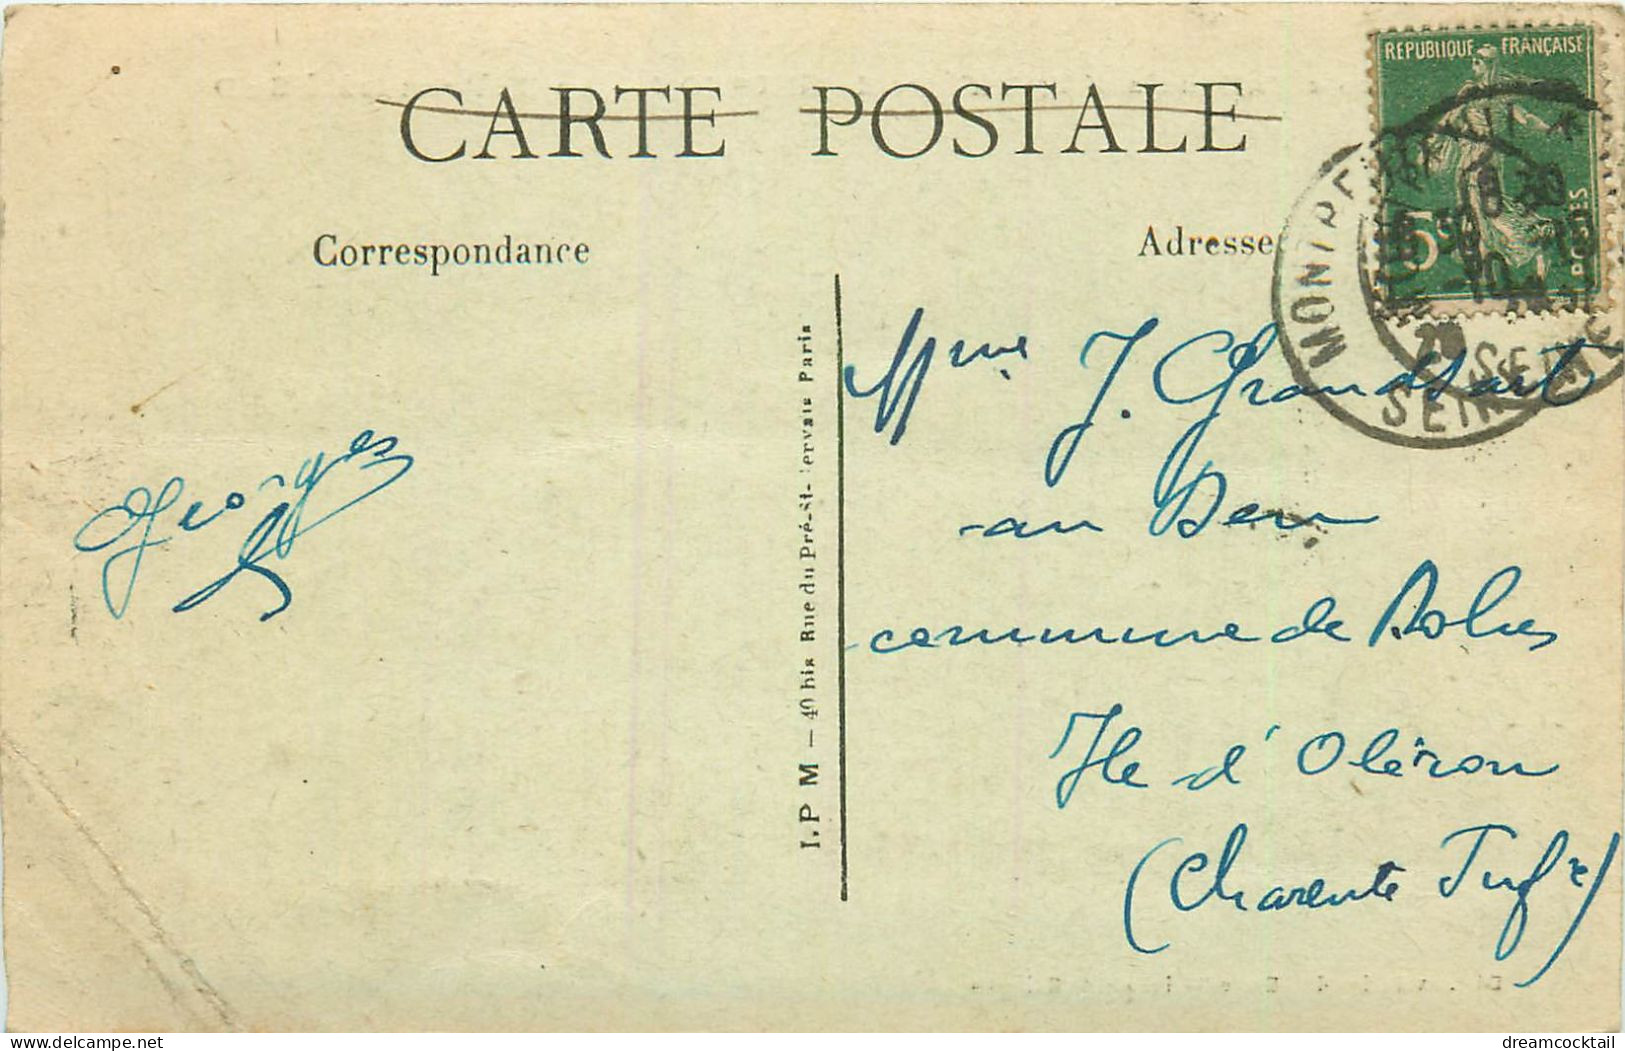 CARTE POSTALE
Correspondance
Adresse
REPUBLIQUE FRANÇAISE
POSTES
5c
MONTREUIL
SEINE
Georges
I.P M – 40 bis Rue du Pré-St-Servais Paris
Mme J. Grandsart
au Deu
commune de Dolus
Ile d'Oléron
(Charente Infre)
dreamcocktail